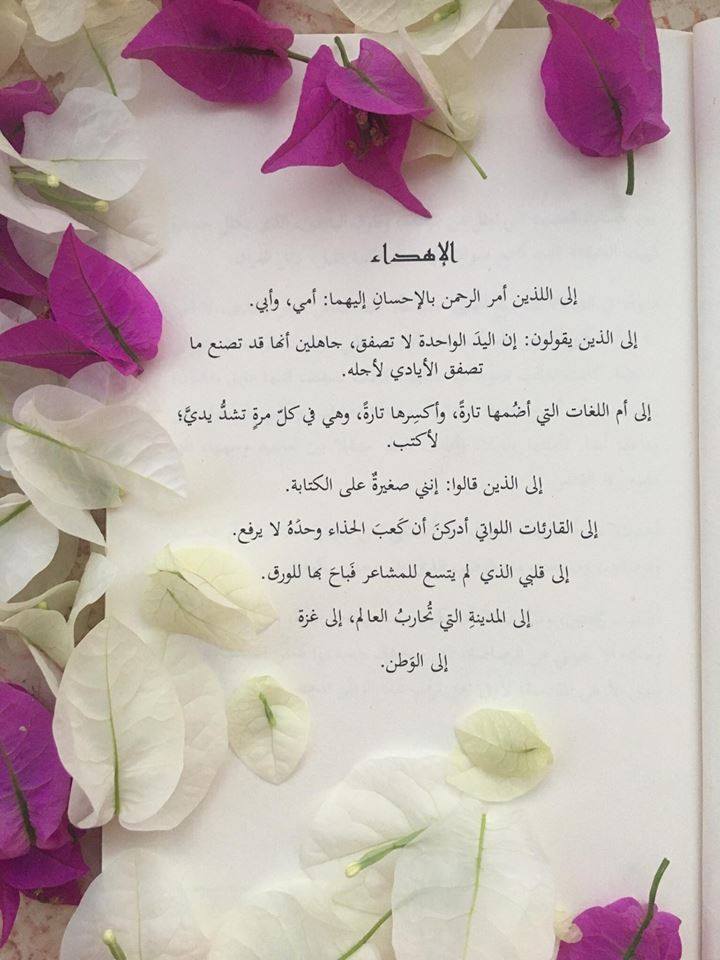 الإهداء
إلى اللذين أمر الرحمن بالإحسانِ إليهما: أمي، وأبي.
إلى الذين يقولون: إن اليدَ الواحدة لا تصفق، جاهلين أنها قد تصنع ما
تصفق الأيادي لأجله.
إلى أم اللغات التي أضُمها تارةً، وأكسِرها تارةً، وهي في كلّ مرةٍ تشدُّ يديَّ؛
لأكتب.
إلى الذين قالوا: إنني صغيرةٌ على الكتابة.
إلى القارئات اللواتي أدركنَ أن كَعبَ الحذاء وحدَهُ لا يرفع.
إلى قلبي الذي لم يتسع للمشاعر فَباحَ بها للورق.
إلى المدينةِ التي تُحاربُ العالم، إلى غزة
إلى الوَطن.